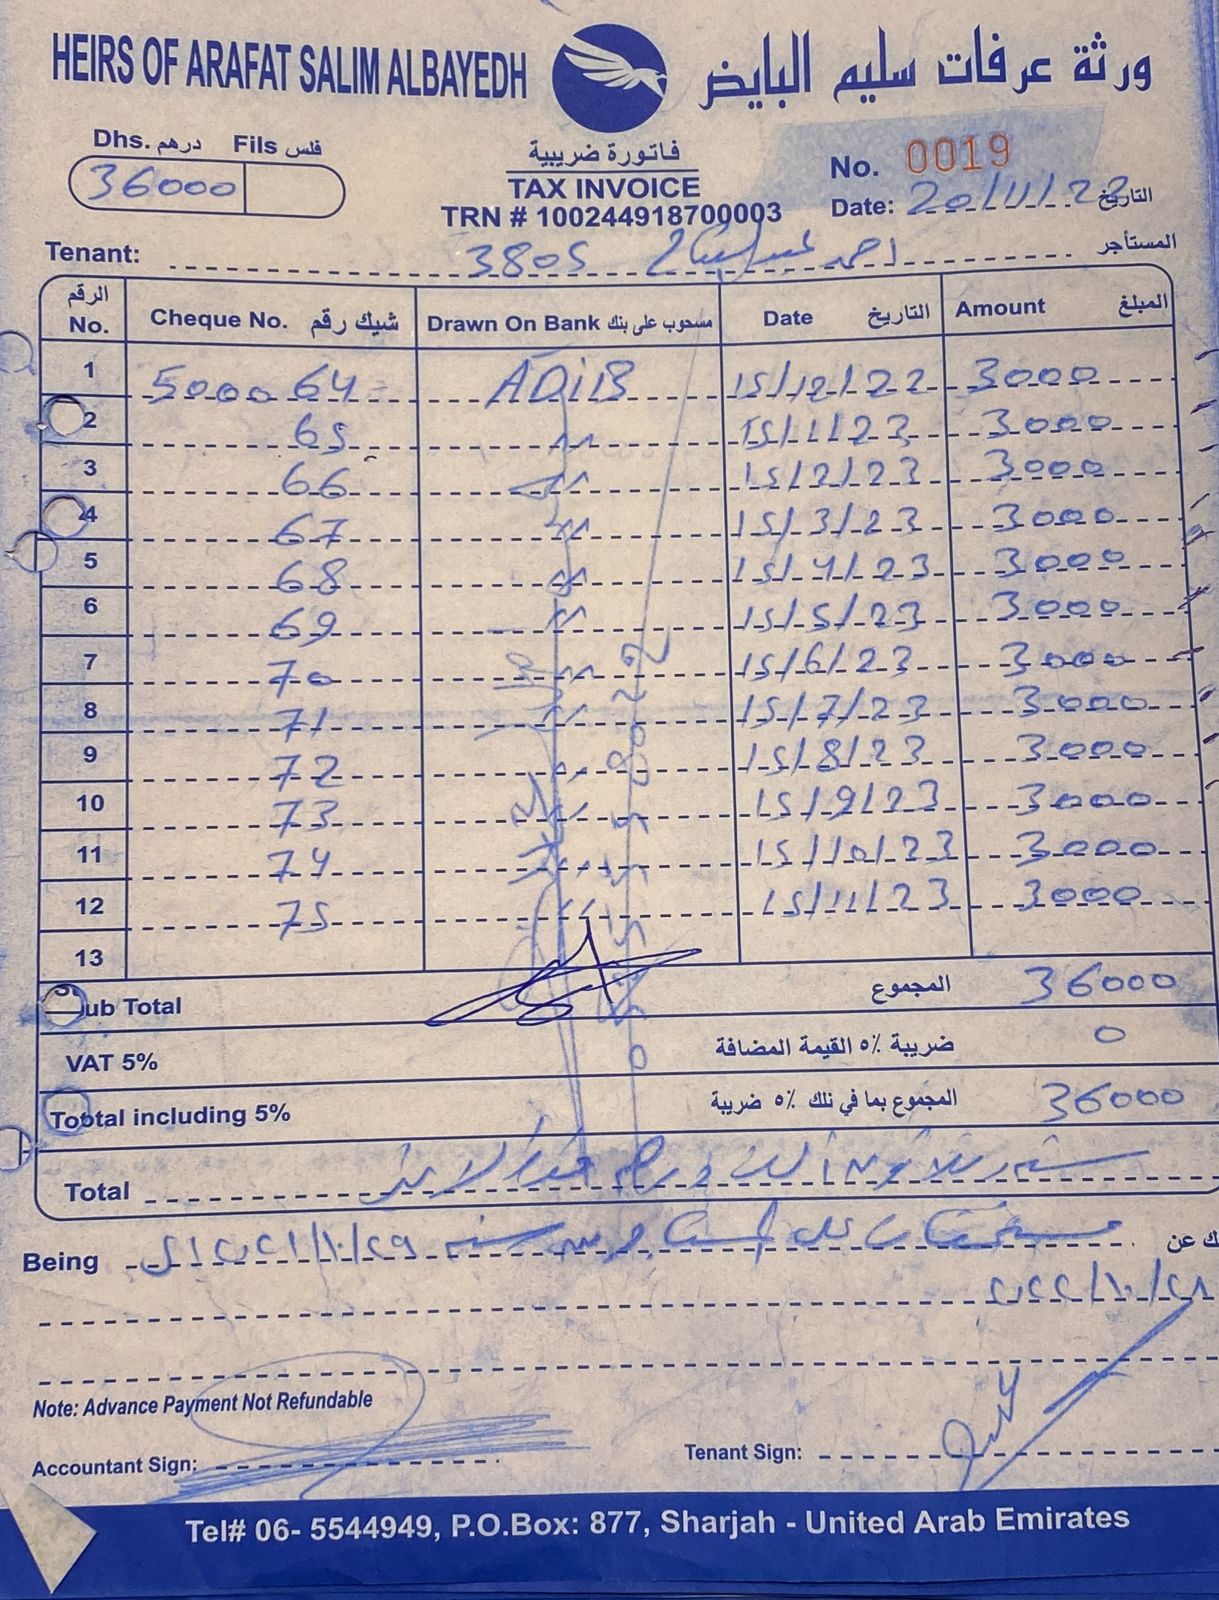 HEIRS OF ARAFAT SALIM ALBAYEDH ورثة عرفات سليم البايض
Dhs. درهم Fils فلس
36000
فاتورة ضريبية
TAX INVOICE
TRN # 100244918700003
No. 0019
Date: 20/11/22 التاريخ
Tenant: 3805 احمد المستأجر
الرقم No. Cheque No. شيك رقم Drawn On Bank مسحوب على بنك Date التاريخ Amount المبلغ
1 5000 64 ADIB 15/12/22 3000
2 65 " 15/1/23 3000
3 66 " 15/2/23 3000
4 67 " 15/3/23 3000
5 68 " 15/4/23 3000
6 69 " 15/5/23 3000
7 70 " 15/6/23 3000
8 71 " 15/7/23 3000
9 72 " 15/8/23 3000
10 73 " 15/9/23 3000
11 74 " 15/10/23 3000
12 75 " 15/11/23 3000
13
Sub Total المجموع 36000
VAT 5% ضريبة ٥٪ القيمة المضافة 0
Total including 5% المجموع بما في ذلك ٥٪ ضريبة 36000
Total ستة وثلاثون الف درهم فقط لا غير
Being ٢٠٢٢/١٠/٢٩ ك عن
٢٠٢٣/١٠/٢٨
Note: Advance Payment Not Refundable
Accountant Sign: Tenant Sign:
Tel# 06- 5544949, P.O.Box: 877, Sharjah - United Arab Emirates